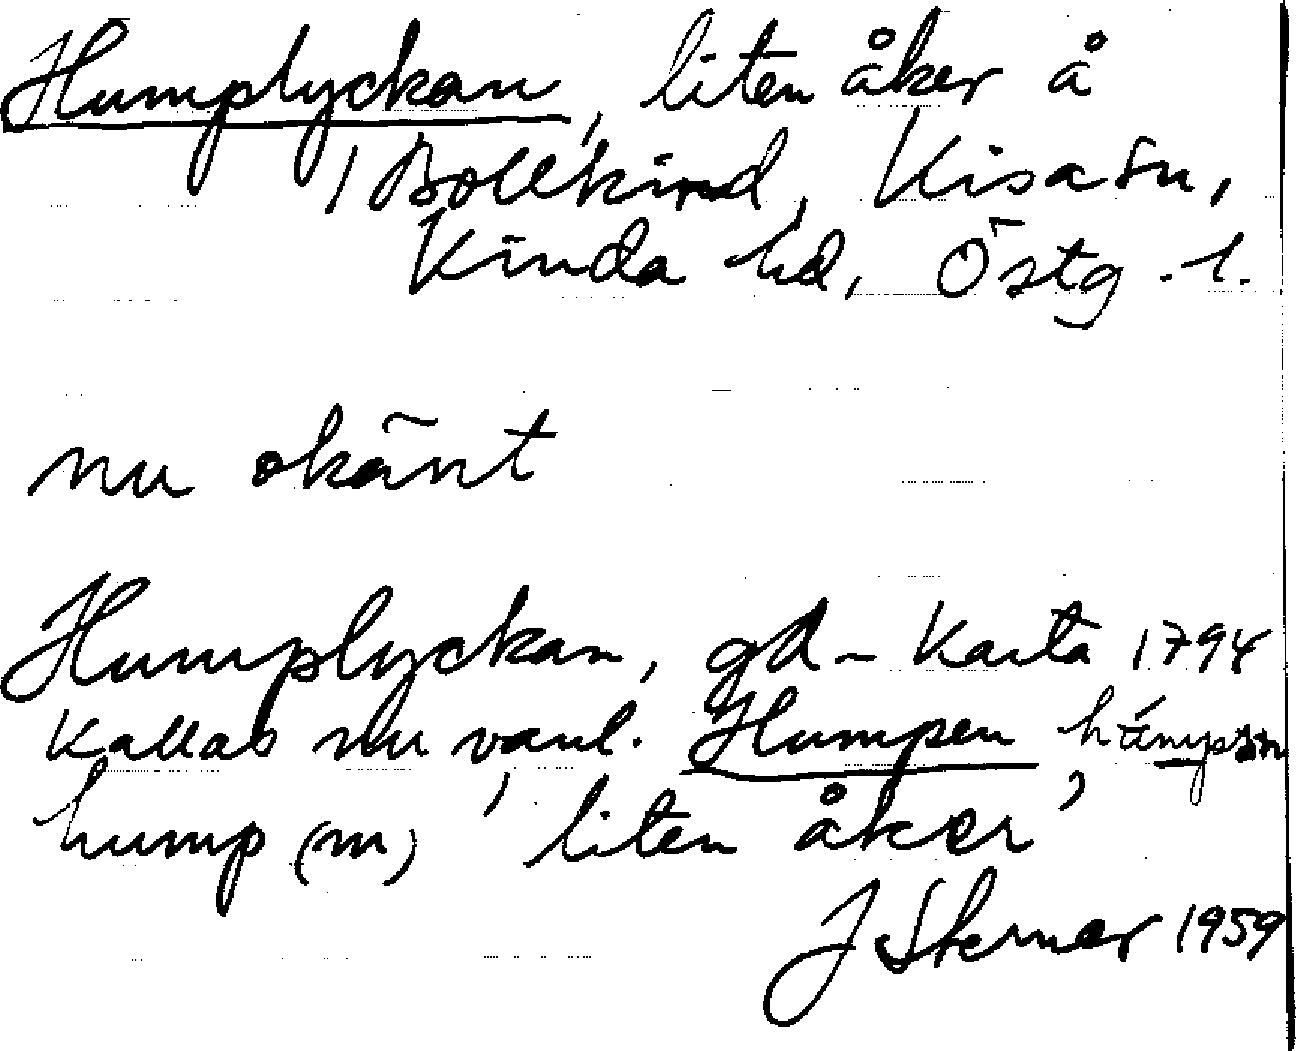 Humplyckan, liten åker å
1 Bollkind, Kisa sn,
Kinda hd, Östg. l.
nu okänt
Humplyckan, gd-Karta 1794
Kallas nu vanl. Humpen
hump (m) 'liten åker'
J Sterner 1959